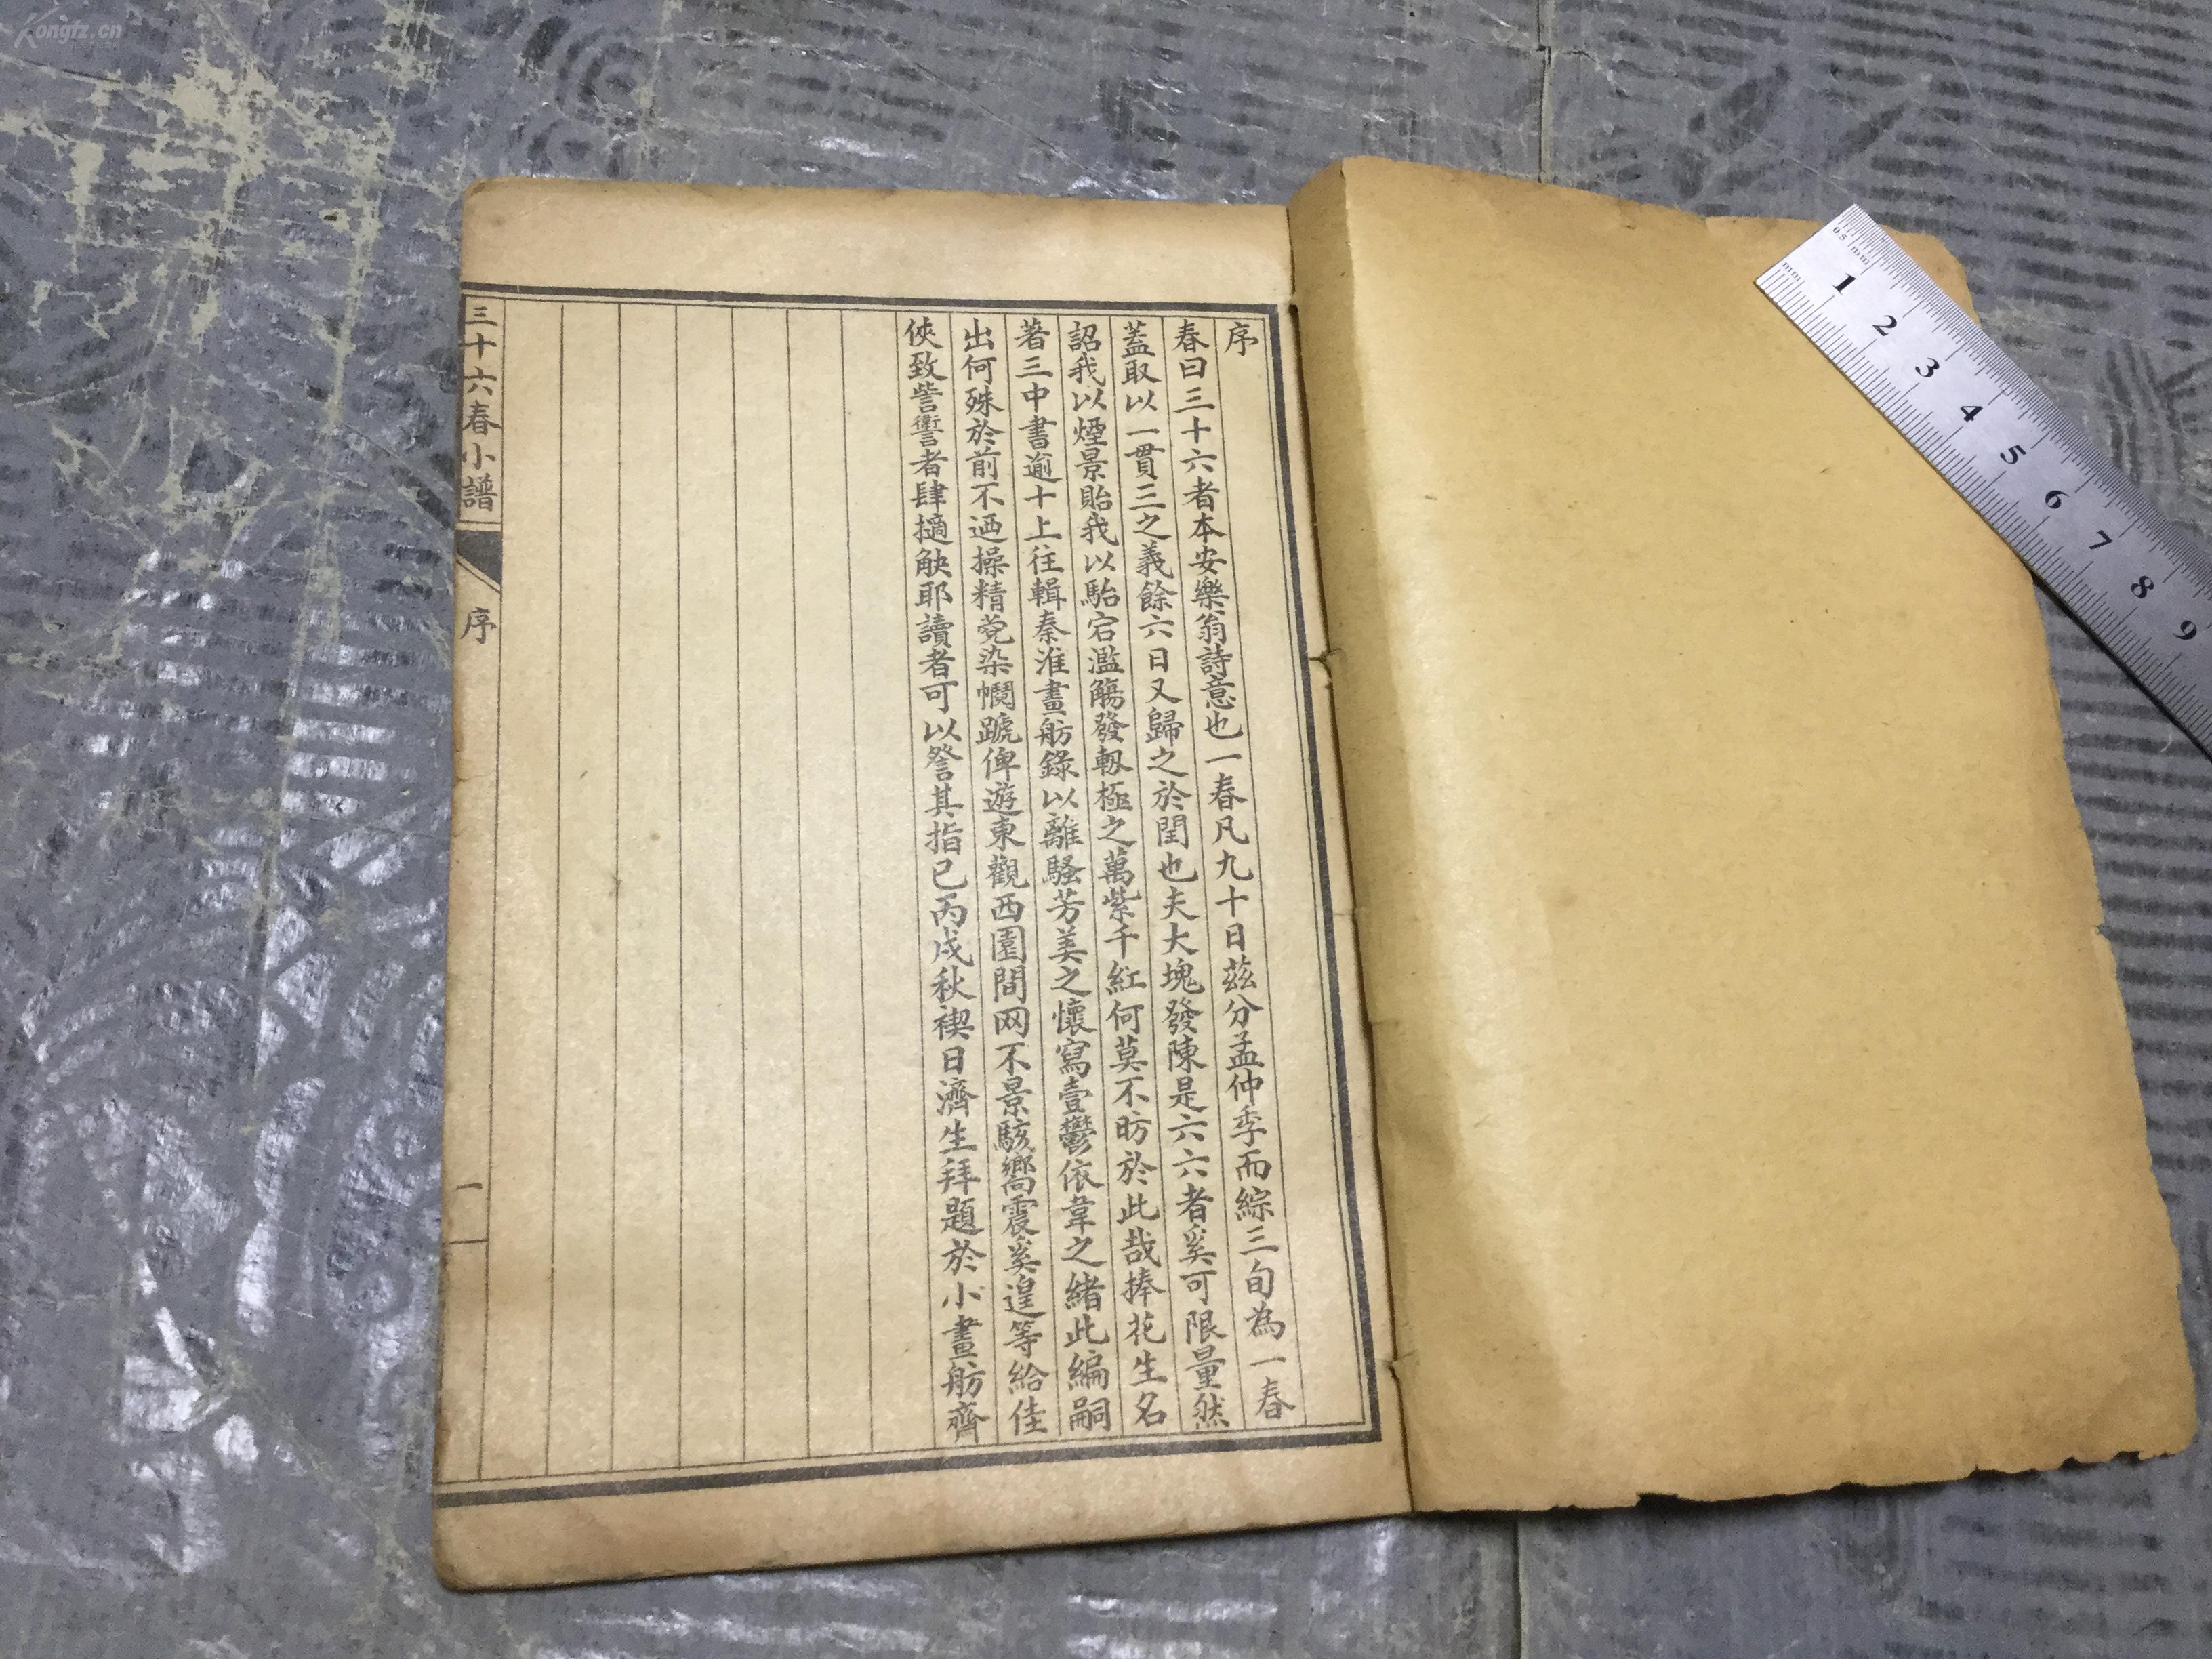 序
春曰三十六者本安樂翁詩意也一春凡九十日茲分孟仲季而綜三旬為一春
蓋取以一貫三之義餘六日又歸之於閏也夫大塊發陳是六六者奚可限量然
詔我以煙景貽我以駘宕濫觴發軔極之萬紫千紅何莫不昉於此哉捧花生名
著三中書逾十上往輯秦淮畫舫錄以離騷芳美之懷寫壹鬱依韋之緒此編嗣
出何殊於前不迺操精染幗蹏俾遊東觀西園間网不景駭嚮震奚遑等給佳
俠致訾讆者肆擿觖耶讀者可以詧其指已丙戌秋禊日濟生拜題於小畫舫齋
三十六春小譜
序
一
Kongfz.cn
0.5 mm
mm
1 2 3 4 5 6 7 8 9